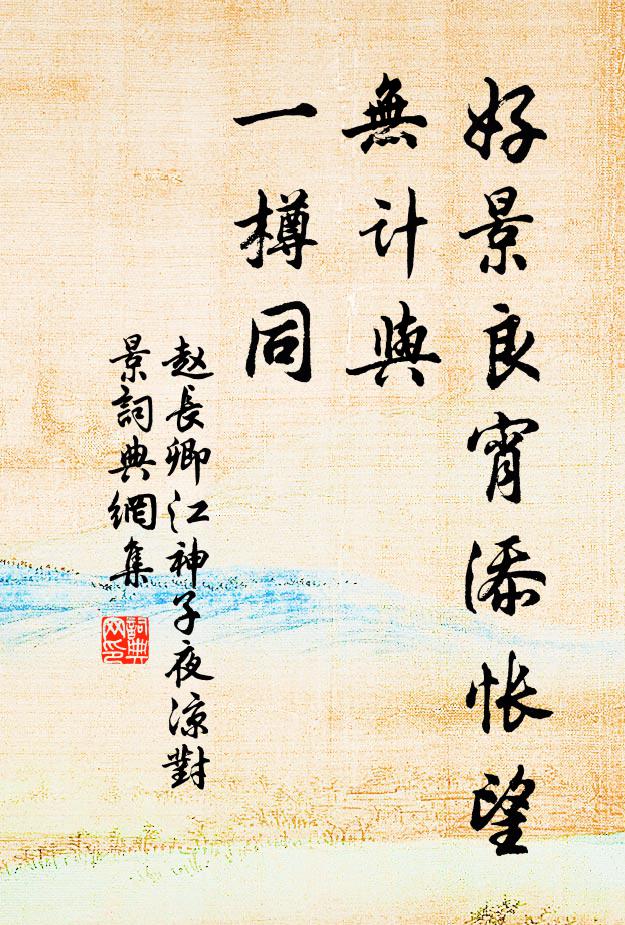 好景良宵添怅望
無计與
一樽同
赵長卿江神子夜凉對
景詞典網集
詞典
网印